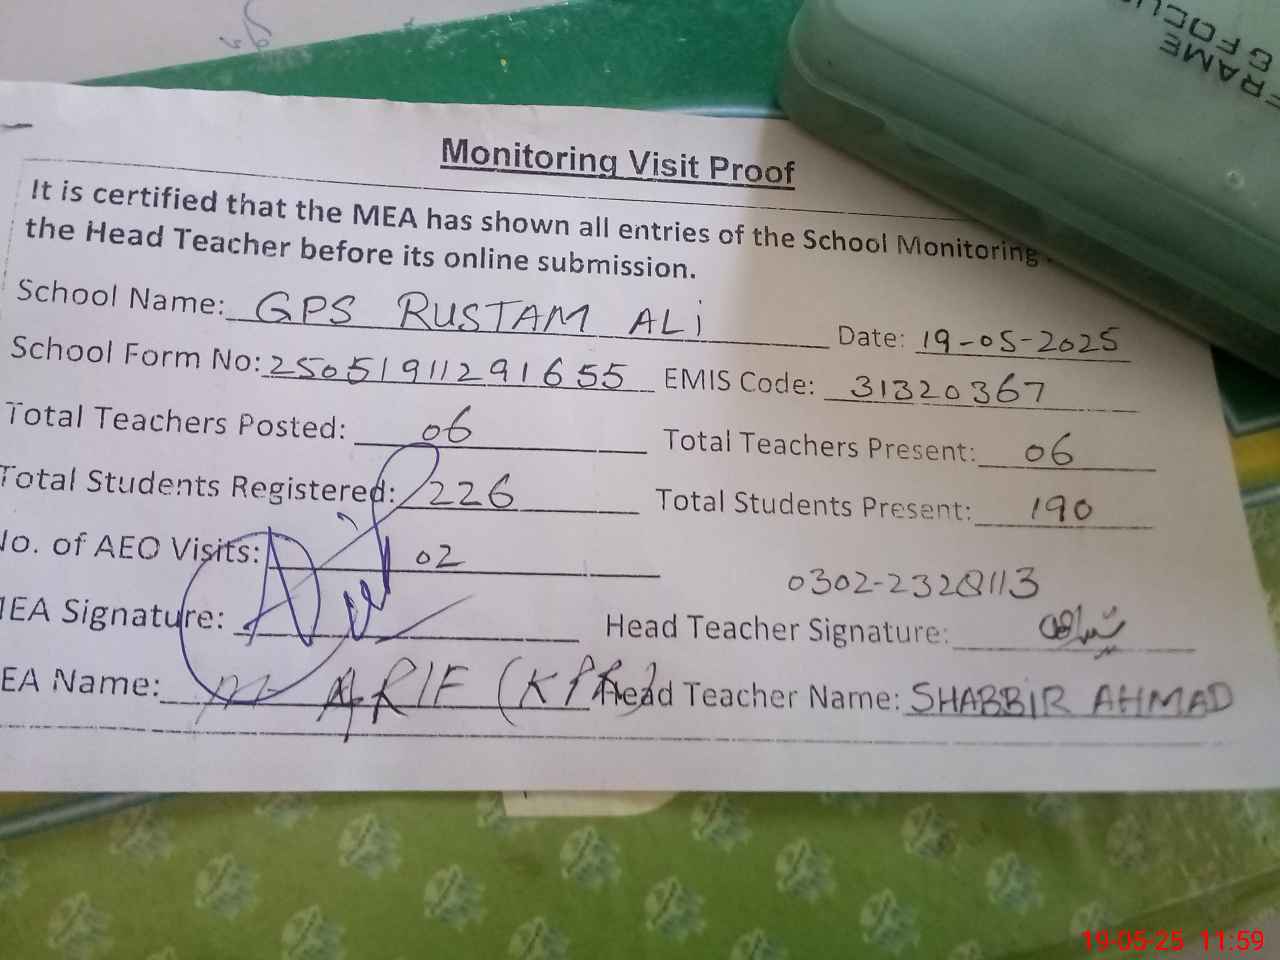 FRAME
G FOCU
Monitoring Visit Proof
It is certified that the MEA has shown all entries of the School Monitoring
the Head Teacher before its online submission.
School Name: GPS RUSTAM ALi
Date: 19-05-2025
School Form No: 25051911291655 EMIS Code: 31320367
Total Teachers Posted: 06 Total Teachers Present: 06
Total Students Registered: 226 Total Students Present: 190
No. of AEO Visits: 02
0302-2328113
MEA Signature: Head Teacher Signature:
EA Name: M ARIF (KPR) Head Teacher Name: SHABBIR AHMAD
19-05-25 11:59